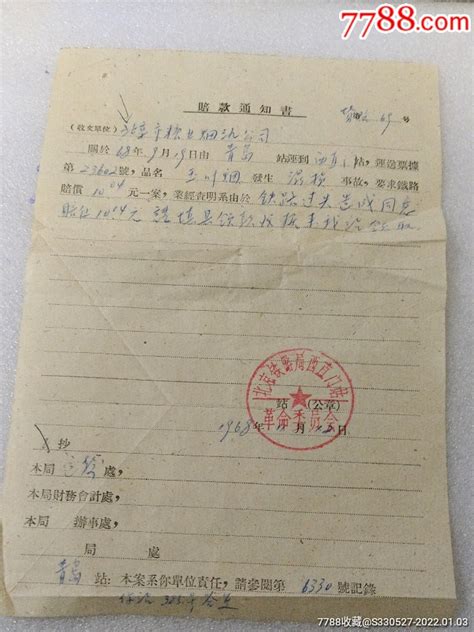 7788.com
中国收藏热线
賠款通知書
69 号
(收文單位) 市糖业烟酒公司
關於68年9月19日由 青島 站運到 西直门 站,運送票據
第23602號,品名 烟 發生 湿损 事故,要求鐵路
賠償10.04元一案,業經查明系由於鉄路过失造成同意
賠付10.04元 請填具领款收據来我站领取
北京铁路局西直门站
革命委员会
站 (公章)
1968年 月 日
抄
本局 處,
本局財務會計處,
本局 辦事處,
局 處
青島 站:本案系你單位責任,請參閱第 6330 號記錄
7788收藏@S330527-2022.01.03